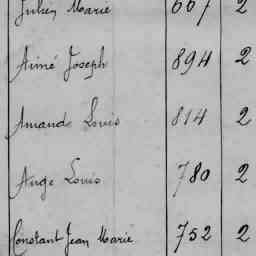 Julien Marie 667 2
Aimé Joseph 894 2
Amande Louis 814 2
Ange Louis 780 2
Constant Jean Marie 752 2